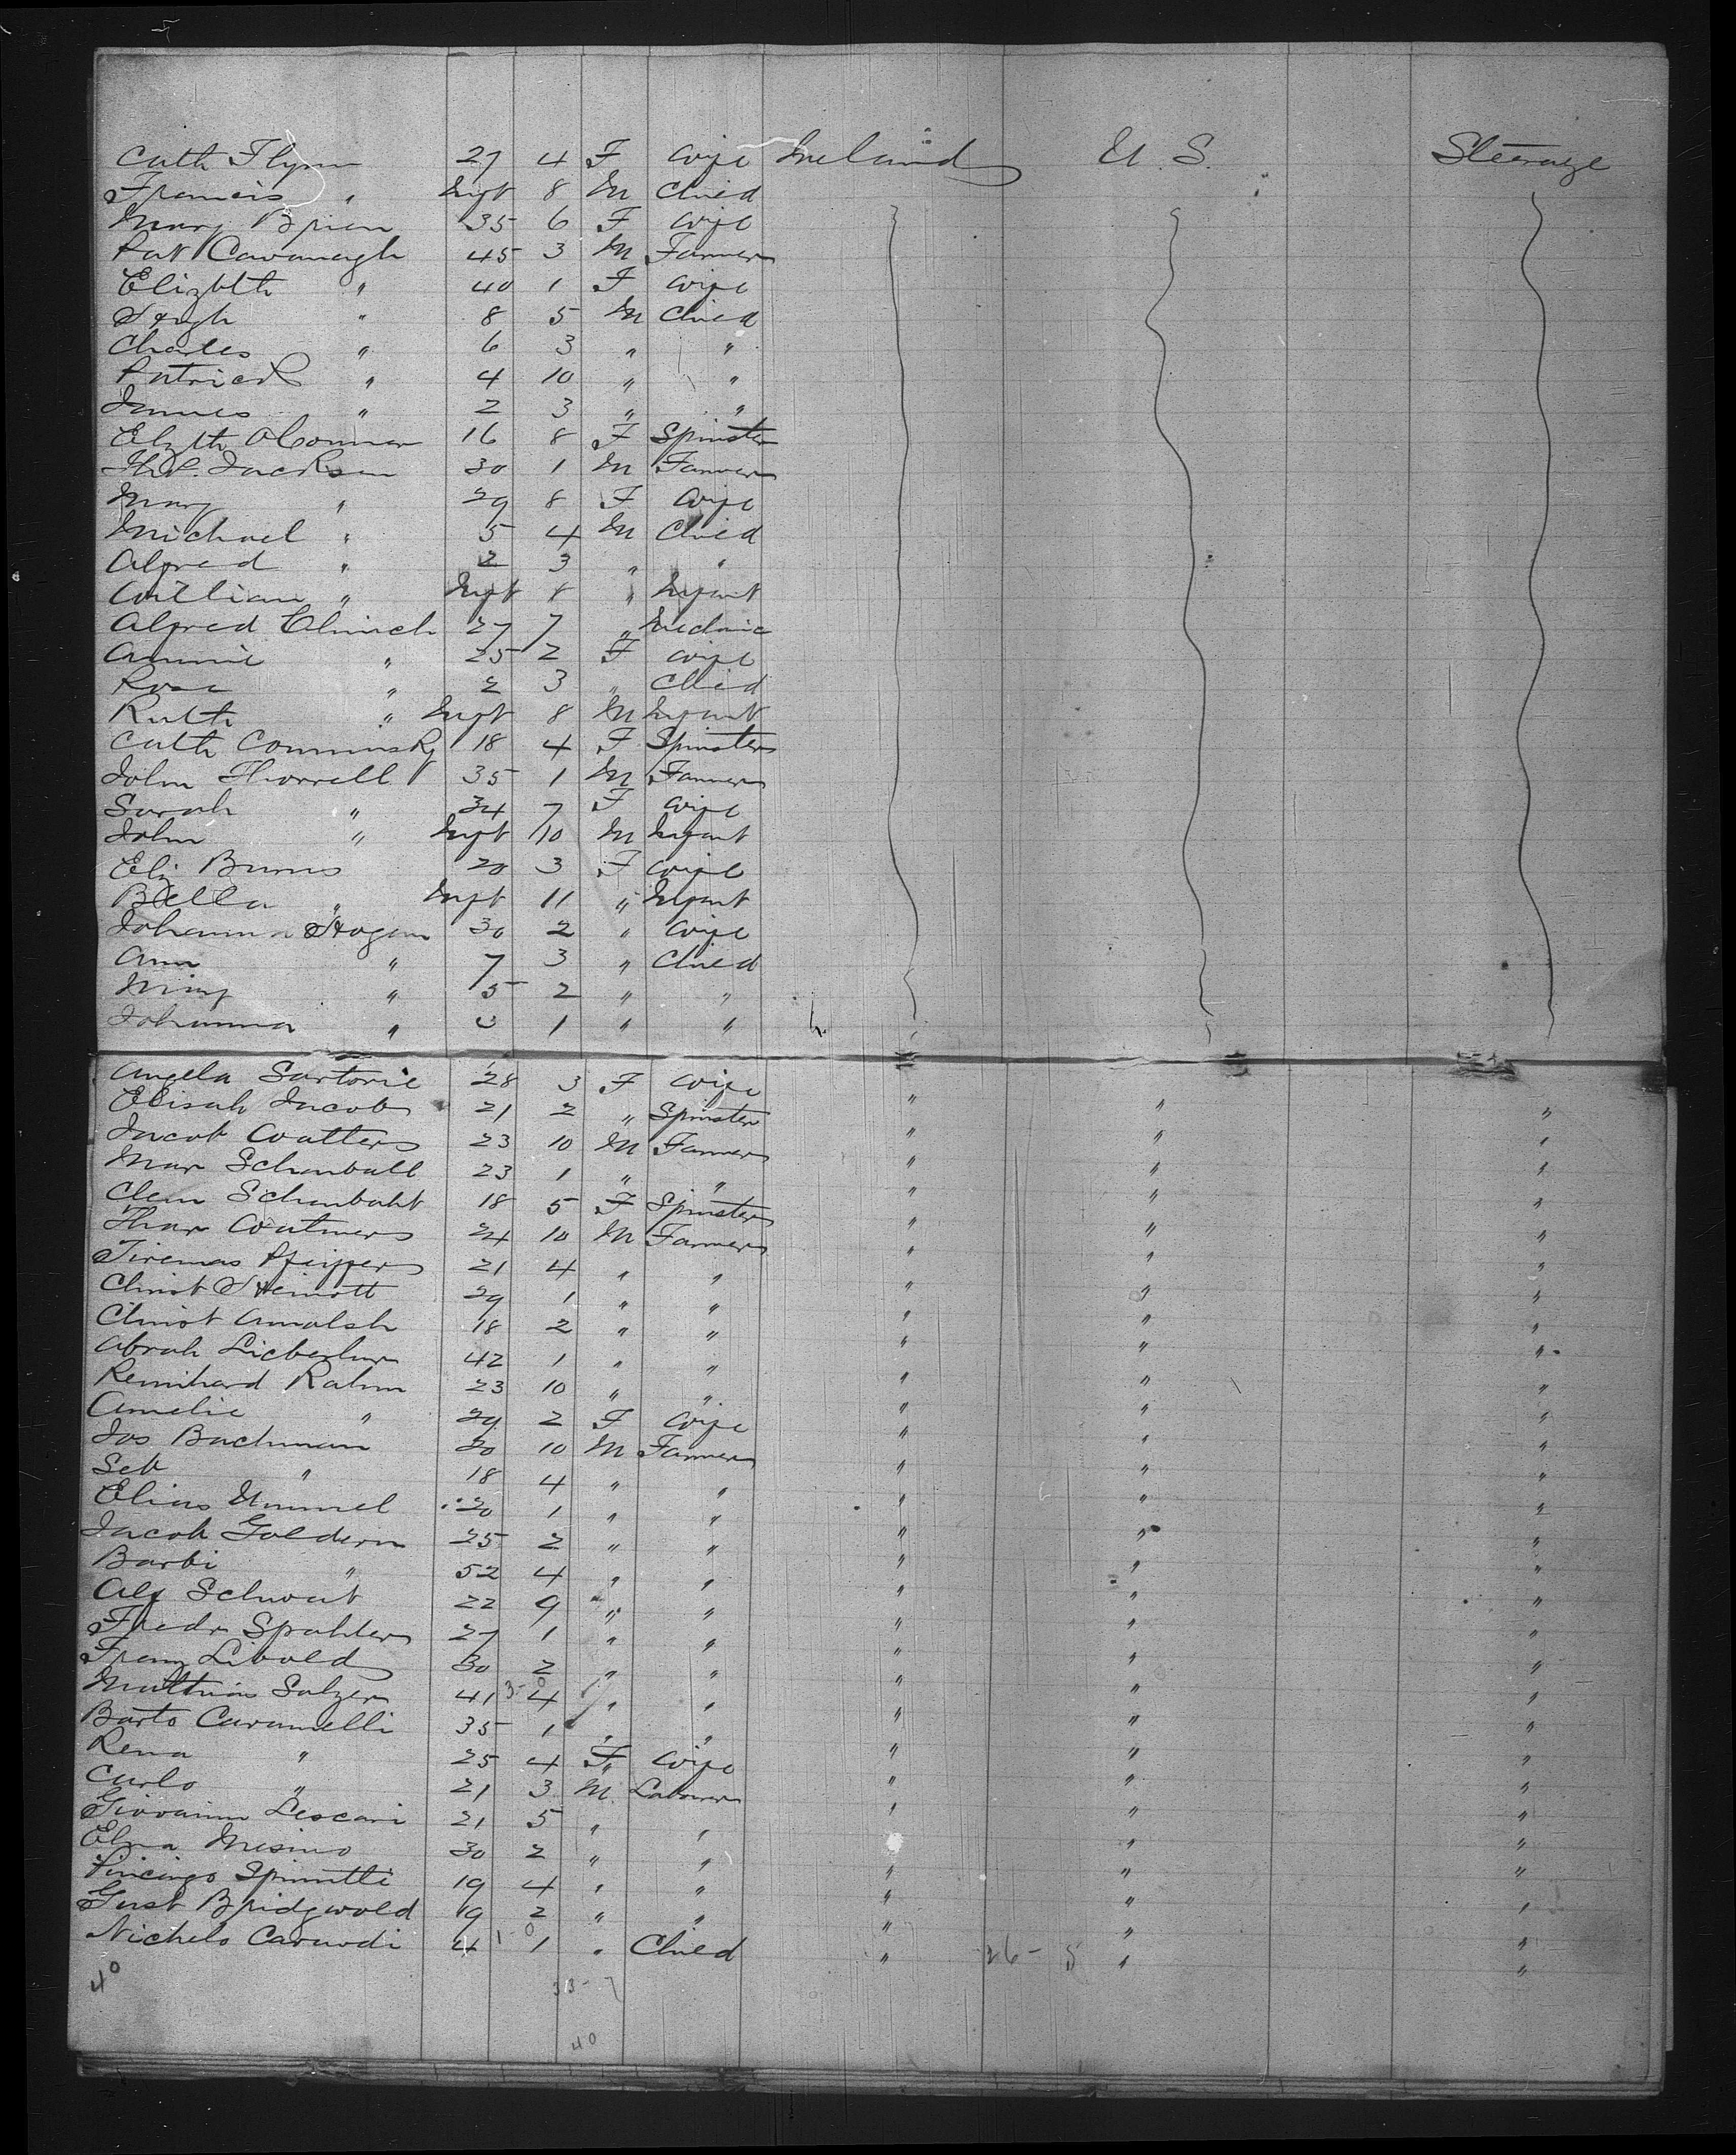 Cath Flynn 27 4 F Wife Ireland U. S. Steerage
Francis " Inft 8 M Child
Mary Brien 35 6 F Wife
Pat Cavanagh 45 3 M Farmer
Elizbth " 40 1 F Wife
Hugh " 8 5 M Child
Charles " 6 3 " "
Patrick " 4 10 " "
James " 2 3 " "
Elzth OConnor 16 8 F Spinster
Jackson 30 1 M Farmer
Mary " 29 8 F Wife
Michael " 5 4 M Child
Alfred " 2 3 " "
William " Inft 8 " Infant
Alfred Church 27 7 " Mechnic
Annie " 25 2 F Wife
Rose " 2 3 " Child
Ruth " Inft 8 M Infant
Cath Comminsky 18 4 F Spinster
John Thorrell 35 1 M Farmer
Sarah " 34 7 F Wife
John " Inft 10 M Infant
Eliz Burns 20 3 F Wife
Bella " Inft 11 " Infant
Johanna Hogan 30 2 " Wife
Ann " 7 3 " Child
Mary " 5 2 " "
Johanna " 3 1 " "
Angela Sartorie 28 3 F Wife " " "
Elisah Jacob 21 2 " Spinster " " "
Jacob Watters 23 10 M Farmer " " "
Mar Schonball 23 1 " " " " "
Clem Schonbaht 18 5 F Spinster " " "
Thar Watmers 24 10 M Farmer " " "
Pfeipper 21 4 " " " " "
Christ Heinott 29 1 " " " " "
Christ Arnalsh 18 2 " " " " "
Abrah 42 1 " " " " "
Reinhard Rahm 23 10 " " " " "
Amelie " 29 2 F Wife " " "
Jos Bachman 20 10 M Farmer " " "
Seb " 18 4 " " " " "
Elias Ummel 20 1 " " " " "
Jacob Goldern 25 2 " " " " "
Barbi " 52 4 " " " " "
Alf Schwart 22 9 " " " " "
Fredr Spahler 27 1 " " " " "
Franz Libold 30 2 " " " " "
Mathias Salzer 41 4 " " " " "
Barto Caramelli 35 1 " " " " "
Rena " 25 4 F Wife " " "
Carlo " 21 3 M Laborer " " "
Giovanni Lescari 21 5 " " " " "
Elma Mesino 30 2 " " " " "
Vincingo Spinetti 19 4 " " " " "
Gust Bridgwold 19 2 " " " " "
Nichelo Carurodi 4 1 " Child " " "
26- 5
40
33-7
40